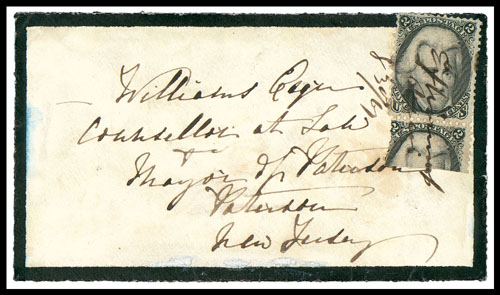 Williams Esqr
Counsellor at Law
&
Mayor of Paterson
Paterson
New Jersey
2 U.S. POSTAGE 2
2 U.S. POSTAGE 2